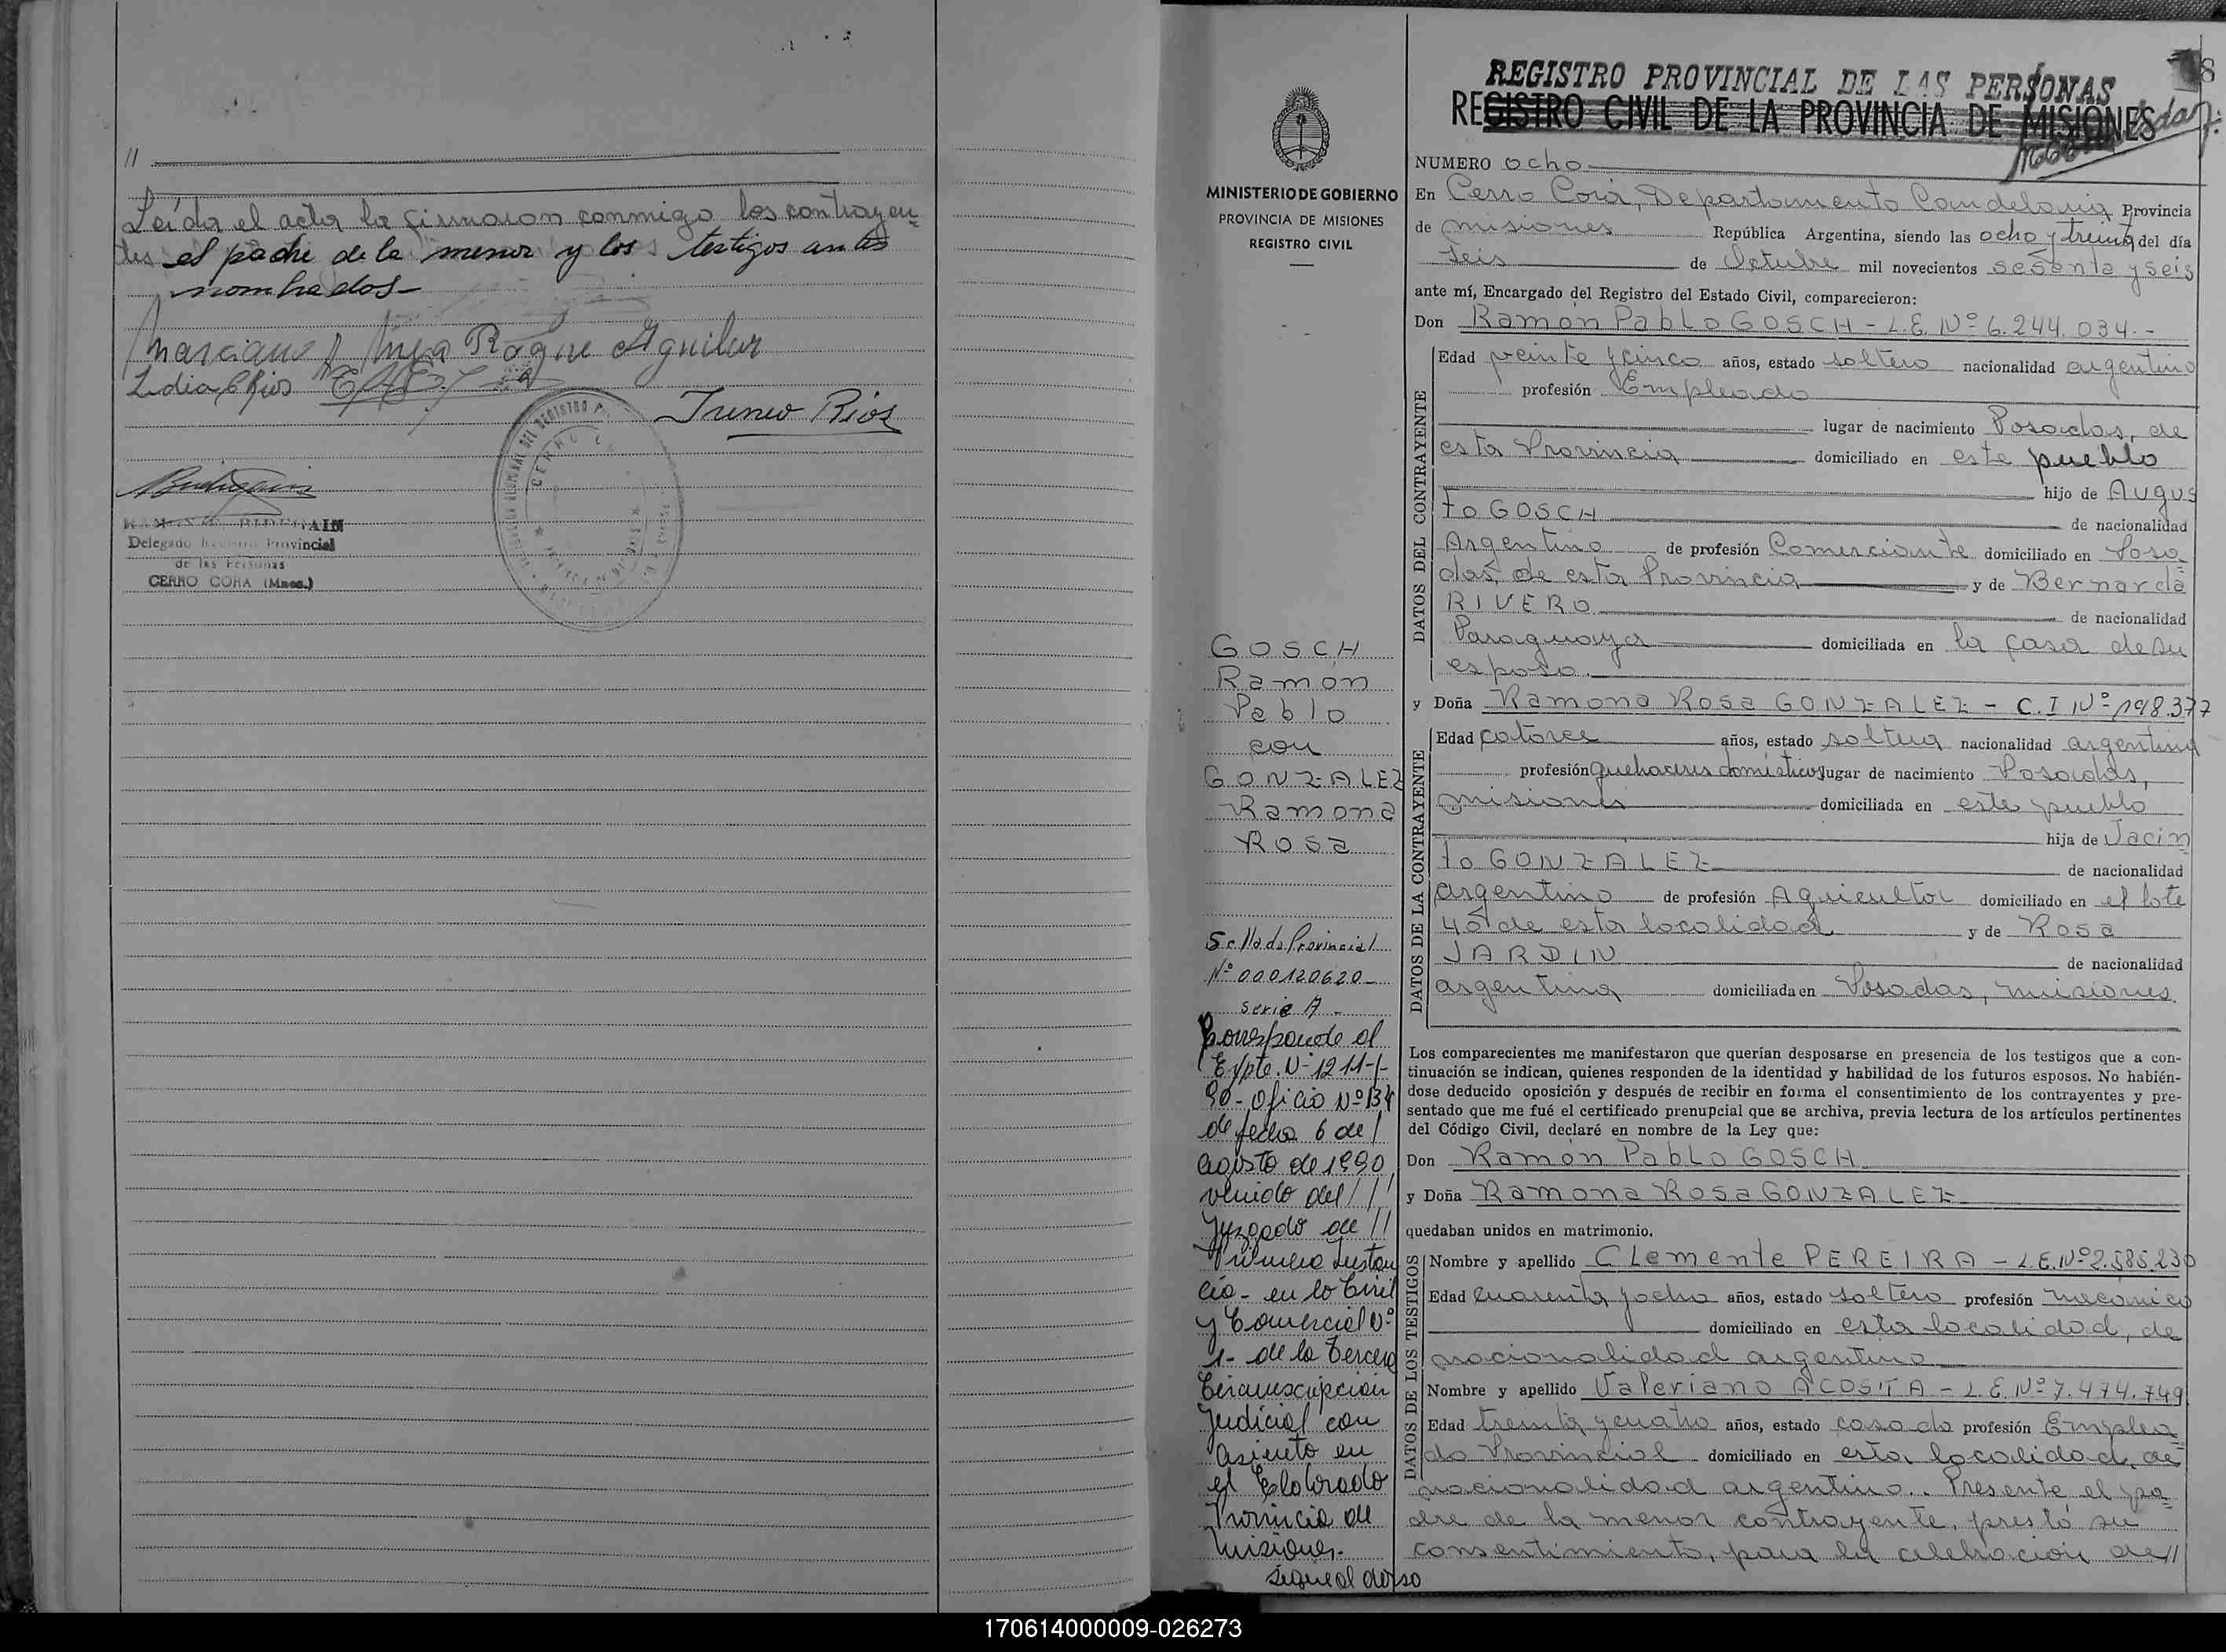 //
Leída el acta la firmaron conmigo los contrayen-
tes el padre de la menor y los testigos antes
nombrados-
Roque Aguilar
Irineo Rios
Delegado Provincial
de las Personas
CERRO CORA (Mnes.)
8
REGISTRO PROVINCIAL DE LAS PERSONAS
REGISTRO CIVIL DE LA PROVINCIA DE MISIONES
MINISTERIO DE GOBIERNO
PROVINCIA DE MISIONES
REGISTRO CIVIL
GOSCH
Ramón
Pablo
con
GONZALEZ
Ramona
Rosa
Sellado Provincial
Nº 000120620
serie A-
Corresponde al
Expte. Nº 1211-/-
90- Oficio Nº 134
de fecha 6 de /
agosto de 1990
venido del //
Juzgado de //
Primera Instan
cia- en lo Civil
y Comercial Nº
1- de la Tercera
Circunscripción
Judicial con
asiento en
el Eldorado
Provincia de
Misiones.
sigue al dorso
NUMERO ocho
En Cerro Corá, Departamento Candelaria Provincia
de misiones República Argentina, siendo las ocho y treinta del día
seis de Octubre mil novecientos sesenta y seis
ante mí, Encargado del Registro del Estado Civil, comparecieron:
Don Ramón Pablo GOSCH - L.E. Nº 6.244.034.-
DATOS DEL CONTRAYENTE
Edad veinte y cinco años, estado soltero nacionalidad argentino
profesión Empleado
lugar de nacimiento Posadas, de
esta Provincia domiciliado en este pueblo
hijo de Augus
to GOSCH de nacionalidad
Argentino de profesión Comerciante domiciliado en Posa-
das, de esta Provincia y de Bernarda
RIVERO de nacionalidad
Paraguaya domiciliada en la casa de su
esposo.
y Doña Ramona Rosa GONZALEZ - C.I Nº 198.377
DATOS DE LA CONTRAYENTE
Edad catorce años, estado soltera nacionalidad argentina
profesión quehaceres domésticos lugar de nacimiento Posadas,
misiones domiciliada en este pueblo
hija de Jacin
to GONZALEZ de nacionalidad
argentino de profesión Agricultor domiciliado en el lote
45 de esta localidad y de Rosa
JARDIN de nacionalidad
argentina domiciliada en Posadas, misiones.
Los comparecientes me manifestaron que querían desposarse en presencia de los testigos que a con-
tinuación se indican, quienes responden de la identidad y habilidad de los futuros esposos. No habién-
dose deducido oposición y después de recibir en forma el consentimiento de los contrayentes y pre-
sentado que me fué el certificado prenupcial que se archiva, previa lectura de los artículos pertinentes
del Código Civil, declaré en nombre de la Ley que:
Don Ramón Pablo GOSCH
y Doña Ramona Rosa GONZALEZ
quedaban unidos en matrimonio.
DATOS DE LOS TESTIGOS
Nombre y apellido Clemente PEREIRA - L.E. Nº 2.585.230
Edad cuarenta y ocho años, estado soltero profesión mecánico
domiciliado en esta localidad, de
nacionalidad argentino
Nombre y apellido Valeriano ACOSTA - L.E. Nº 7.474.749
Edad treinta y cuatro años, estado casado profesión Emplea-
do Provincial domiciliado en esta localidad, de
nacionalidad argentino.. Presente el pa-
dre de la menor contrayente, prestó su
consentimiento, para la celebración de//
170614000009-026273